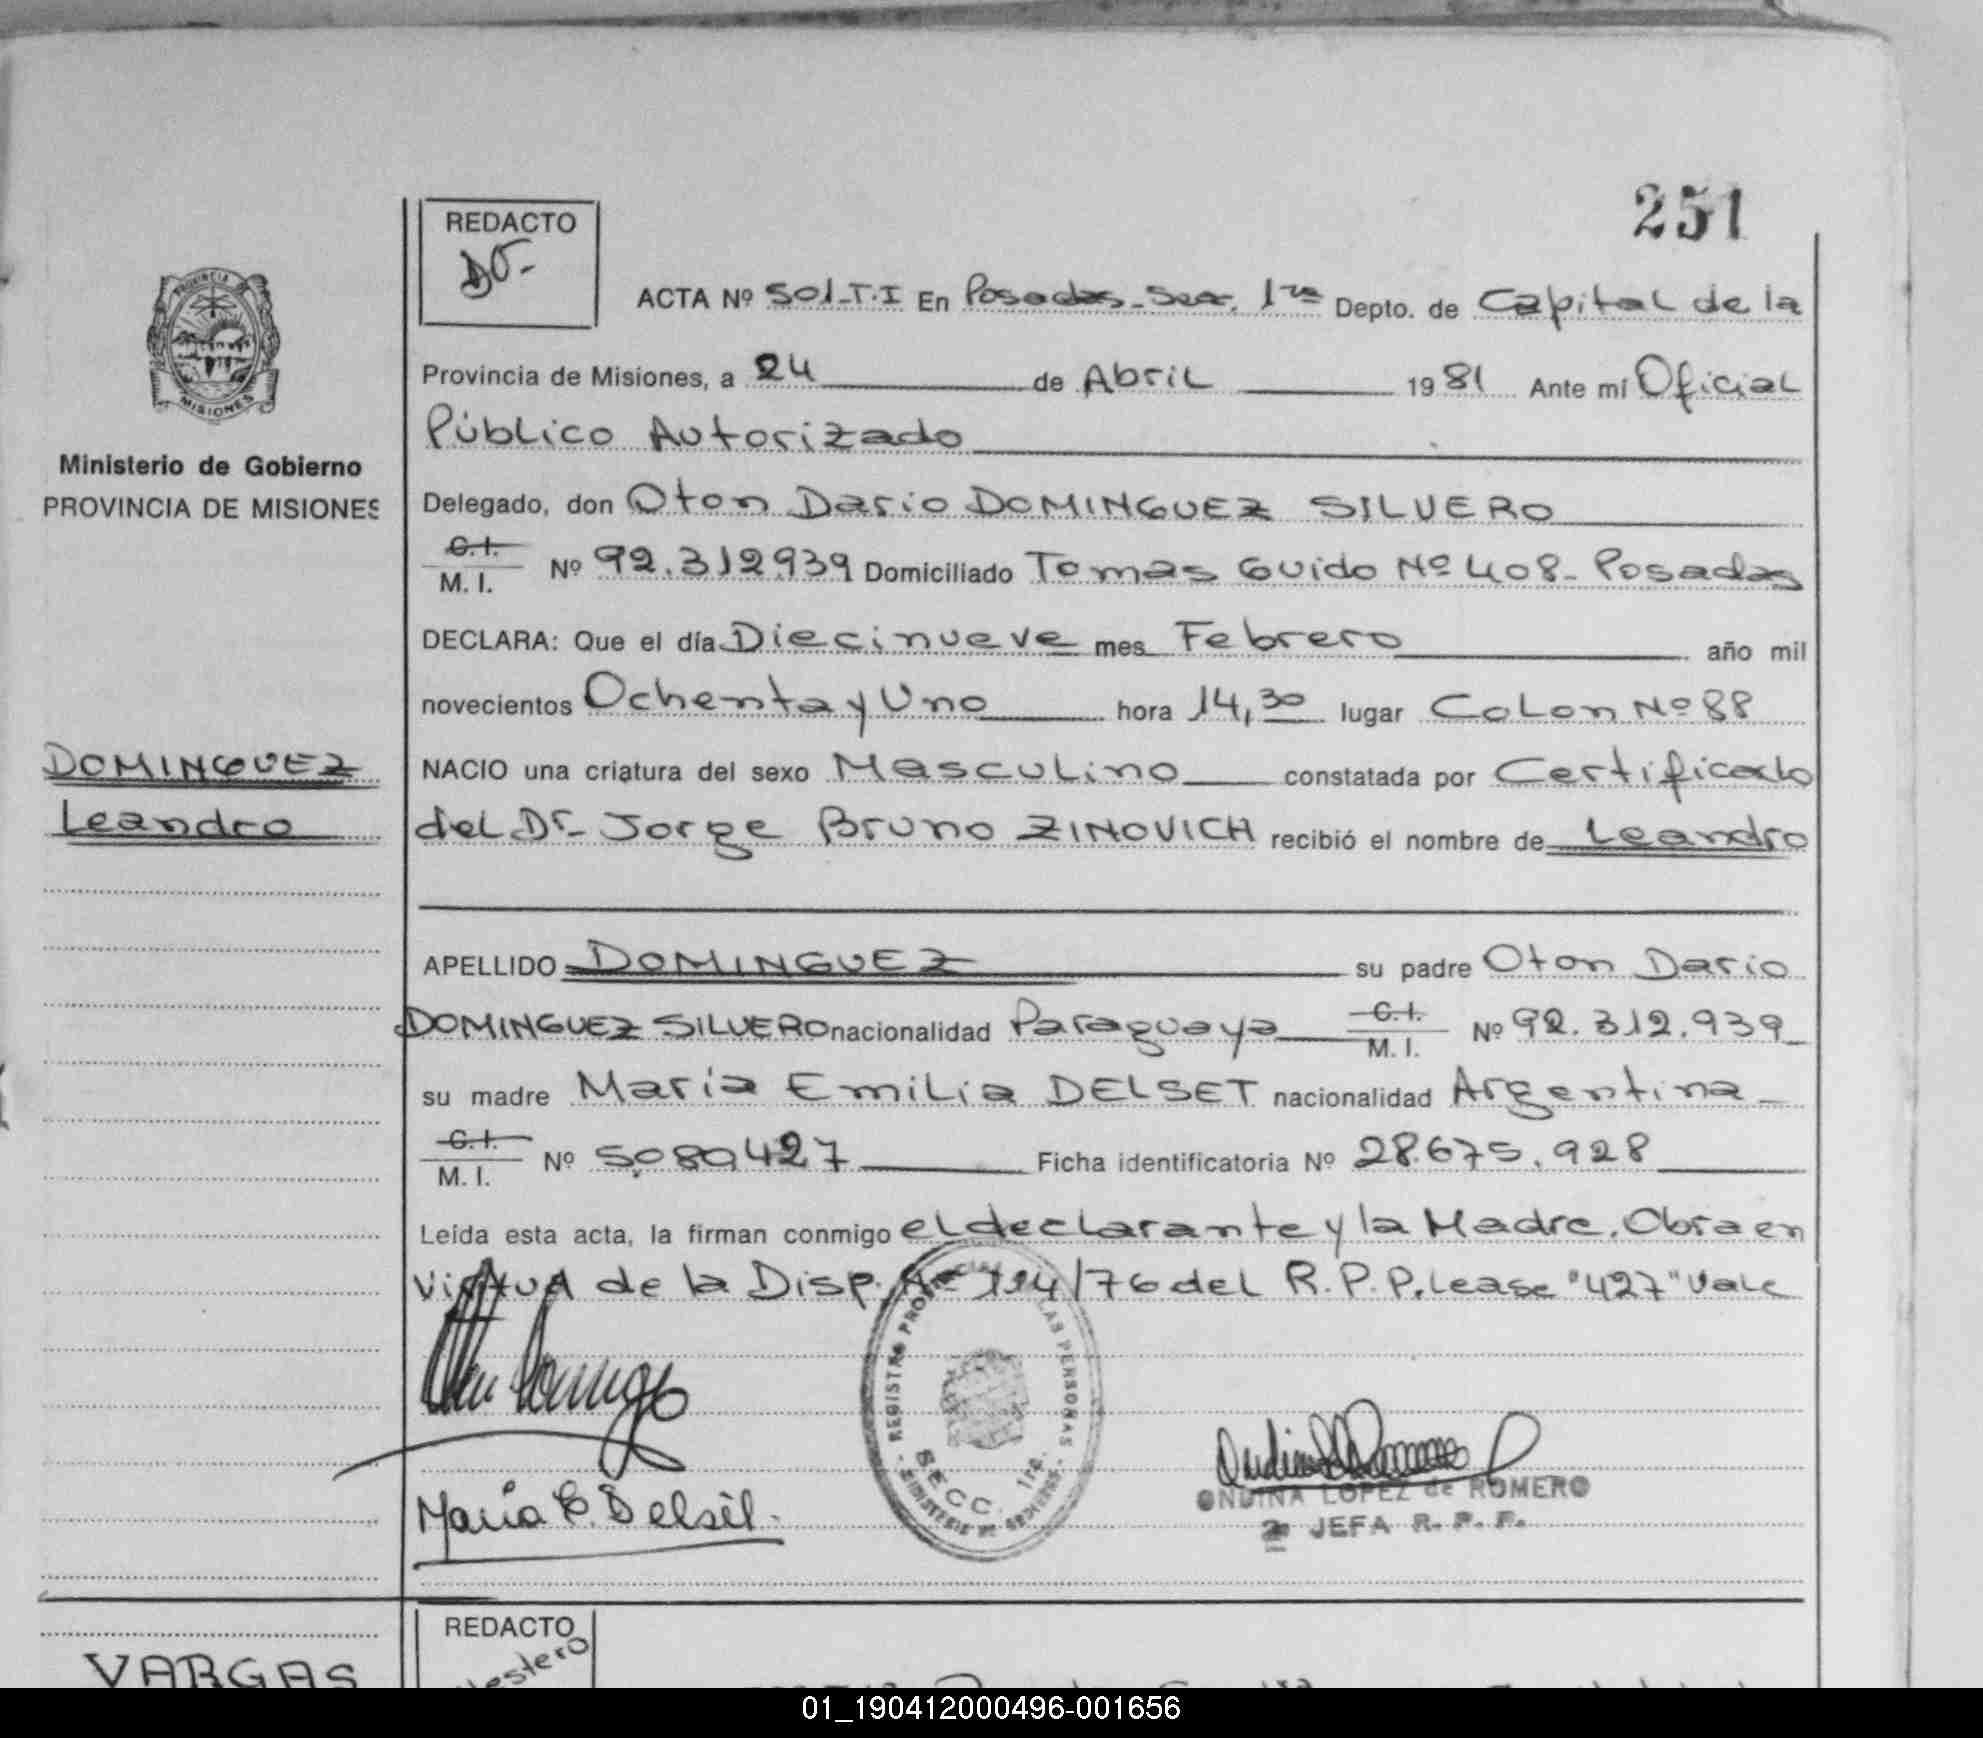 251
REDACTO
ACTA Nº 501-T.I En Posadas-Secc. 1ra Depto. de Capital de la
Provincia de Misiones, a 24 de Abril 1981 Ante mí Oficial
Público Autorizado
Delegado, don Oton Dario DOMINGUEZ SILVERO
C.I.
M.I. Nº 92.312.939 Domiciliado Tomas Guido Nº 408- Posadas
DECLARA: Que el día Diecinueve mes Febrero año mil
novecientos Ochenta y Uno hora 14,30 lugar Colon Nº 88
NACIO una criatura del sexo Masculino constatada por Certificado
del Dr- Jorge Bruno ZINOVICH recibió el nombre de Leandro
APELLIDO DOMINGUEZ su padre Oton Dario
DOMINGUEZ SILVERO nacionalidad Paraguaya C.I.
M.I. Nº 92.312.939
su madre María Emilia DELSET nacionalidad Argentina
C.I.
M.I. Nº 5.080427 Ficha identificatoria Nº 28.675.928
Leída esta acta, la firman conmigo el declarante y la Madre. Obra en
virtud de la Disp. Nº 114/76 del R.P.P. Lease "427" Vale
PROVINCIA DE
MISIONES
Ministerio de Gobierno
PROVINCIA DE MISIONES
DOMINGUEZ
Leandro
REGISTRO PROVINCIAL LAS PERSONAS
SECC. 1ra.
MINISTERIO DE GOBIERNO
María E. Delsét.
ONDINA LOPEZ de ROMERO
2ª JEFA R. P. P.
VARGAS
REDACTO
01_190412000496-001656